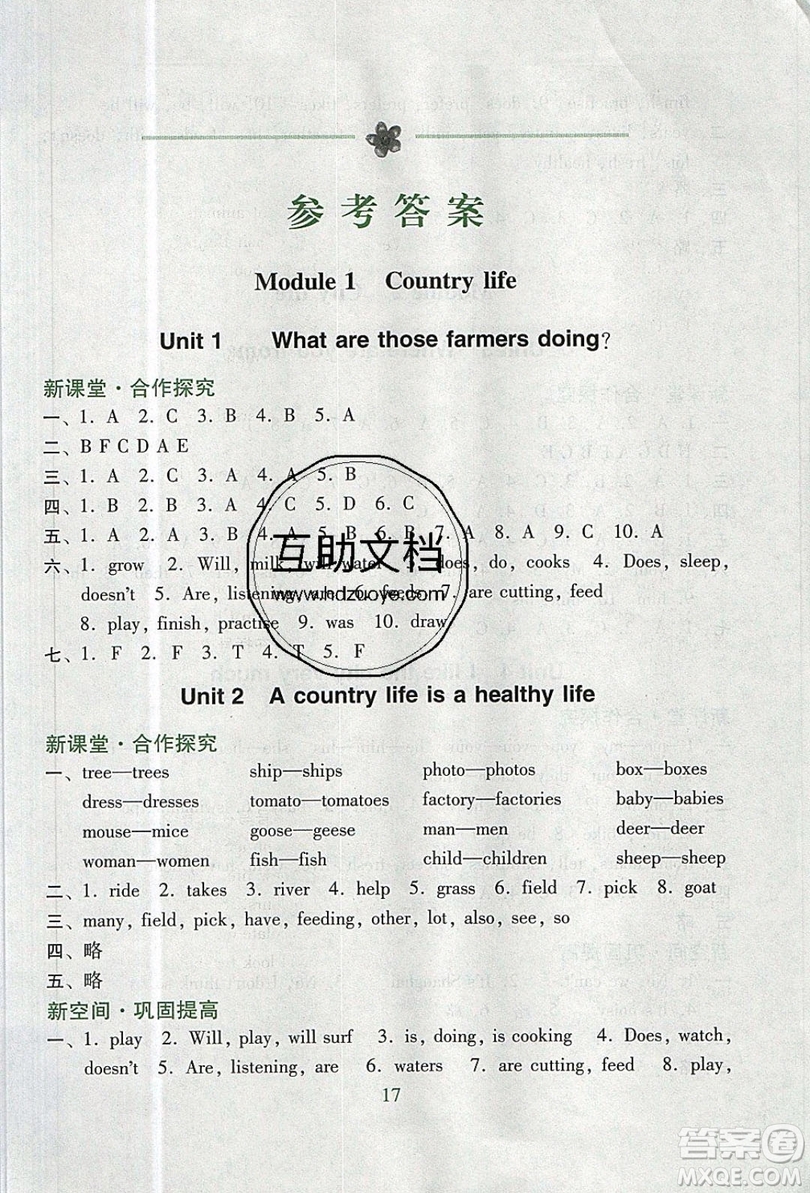 参考答案
Module 1 Country life
Unit 1 What are those farmers doing?
新课堂·合作探究
一、1. A 2. C 3. B 4. B 5. A
二、B F C D A E
三、1. A 2. B 3. A 4. A 5. B
四、1. B 2. B 3. A 4. C 5. D 6. C
五、1. A 2. A 3. B 4. A 5. B 6. B 7. A 8. A 9. C 10. A
六、1. grow 2. Will, milk, will water 3. does, do, cooks 4. Does, sleep,
doesn't 5. Are, listening, are 6. feeds 7. are cutting, feed
8. play, finish, practise 9. was 10. draw
七、1. F 2. F 3. T 4. T 5. F
互助文档
www.hdzuoye.com
Unit 2 A country life is a healthy life
新课堂·合作探究
一、tree—trees ship—ships photo—photos box—boxes
dress—dresses tomato—tomatoes factory—factories baby—babies
mouse—mice goose—geese man—men deer—deer
woman—women fish—fish child—children sheep—sheep
二、1. ride 2. takes 3. river 4. help 5. grass 6. field 7. pick 8. goat
三、many, field, pick, have, feeding, other, lot, also, see, so
四、略
五、略
新空间·巩固提高
一、1. play 2. Will, play, will surf 3. is, doing, is cooking 4. Does, watch,
doesn't 5. Are, listening, are 6. waters 7. are cutting, feed 8. play,
17
答案圈
MXQE.COM